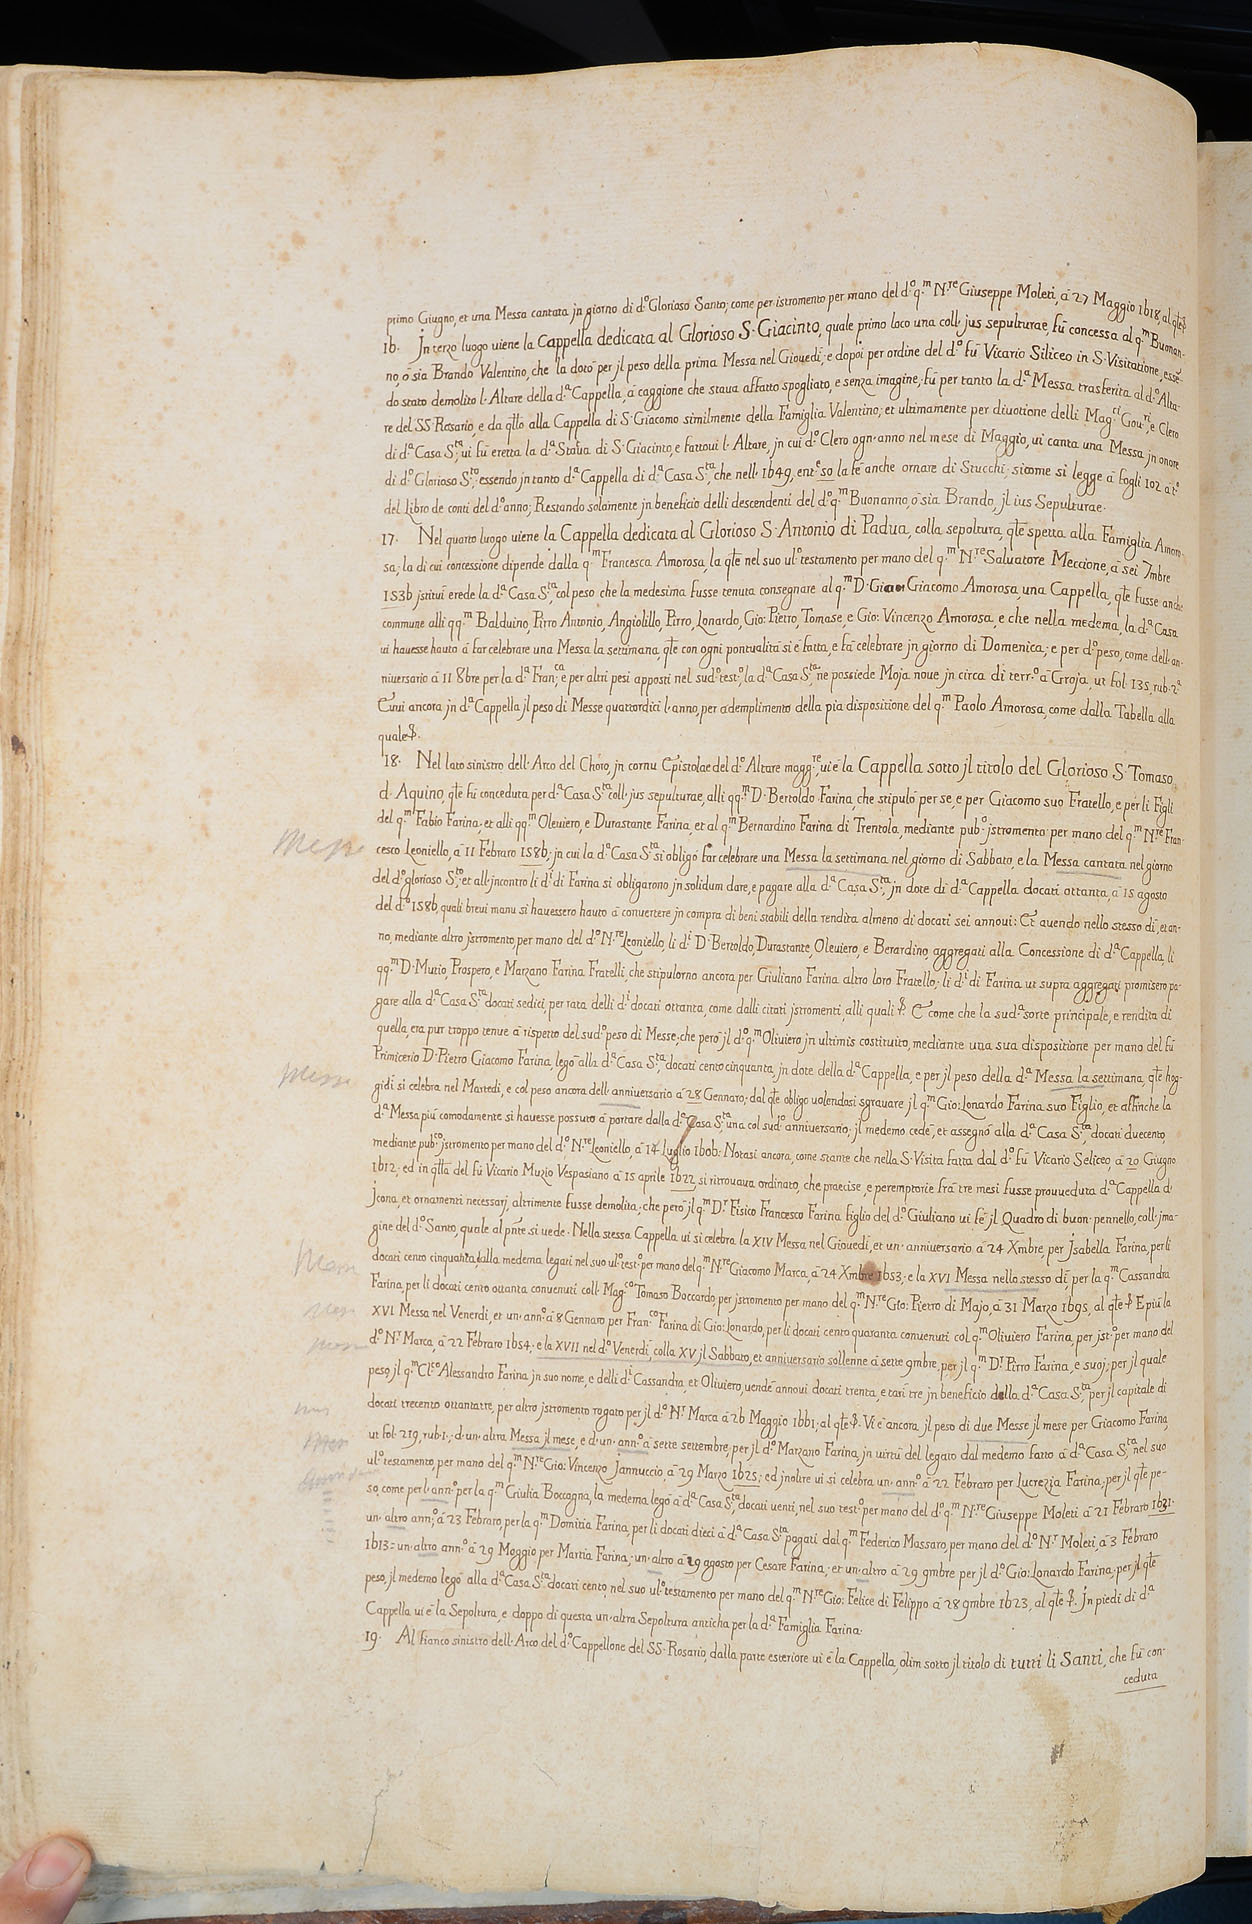 primo Giugno, et una Messa cantata jn giorno di d.º Glorioso Santo; come per istromento per mano del d.º q.m N.re Giuseppe Moleti, à 27 Maggio 1618, al qte &.
16. Jn terzo luogo uiene la Cappella dedicata al Glorioso S. Giacinto, quale primo loco una coll. jus sepulturae, fù concessa al q.m Buonan-
no, ò sia Brando Valentino, che la dotò per jl peso della prima Messa nel Giouedì; e dopoi per ordine del d.º fù Vicario Siliceo in S. Visitatione, essen-
do stato demolito l. Altare della d.a Cappella, à caggione che staua affatto spogliato, e senza imagine; fù per tanto la d.a Messa trasferita al d.º Alta-
re del SS. Rosario, e da qllo alla Cappella di S. Giacomo similmente della Famiglia Valentino; et ultimamente per diuotione delli Mag.ci Gou.ri, e Clero
di d.a Casa S.ta, ui fù eretta la d.a Statua di S. Giacinto, e fattoui l. Altare, jn cui d.º Clero ogn. anno nel mese di Maggio, ui canta una Messa jn onore
di d.º Glorioso S.to; essendo jn tanto d.a Cappella di d.a Casa S.ta, che nell. 1649, ent.e so la fè anche ornare di Stucchi; sicome si legge à fogli 102 à t.º
del Libro de conti del d.º anno; Restando solamente jn beneficio delli descendenti del d.º q.m Buonanno, ò sia Brando, jl ius Sepulturae.
17. Nel quarto luogo uiene la Cappella dedicata al Glorioso S. Antonio di Padua, colla sepoltura, qte spetta alla Famiglia Amoro-
sa; la di cui concessione dipende dalla q.m Francesca Amorosa, la qte nel suo ul.º testamento per mano del q.m N.re Saluatore Meccione, à sei 7mbre
1536 jstituì erede la d.a Casa S.ta, col peso che la medesima fusse tenuta consegnare al q.m D. Gian Giacomo Amorosa, una Cappella, qte fusse anche
commune alli qq.m Balduino, Pirro Antonio, Angiolillo, Pirro, Lonardo, Gio: Pietro, Tomase, e Gio: Vincenzo Amorosa, e che nella medema, la d.a Casa
ui hauesse hauto à far celebrare una Messa la settimana, qte con ogni pontualità si è fatta, e fà celebrare jn giorno di Domenica; e per d.º peso, come dell. an-
niuersario à 11 8bre per la d.a Fran.ca, e per altri pesi apposti nel sud.º test.º, la d.a Casa S.ta ne possiede Moja noue jn circa di terr.º à Groja, ut fol. 135, rub. 2.a
Euui ancora jn d.a Cappella jl peso di Messe quattordici l. anno, per adempimento della pia dispositione del q.m Paolo Amorosa, come dalla Tabella alla
quale &.
18. Nel lato sinistro dell. Arco del Choro, jn cornu Epistolae del d.º Altare magg.re, ui è la Cappella sotto jl titolo del Glorioso S. Tomaso
d. Aquino, qte fù conceduta per d.a Casa S.ta coll. jus sepulturae, alli qq.m D. Bertoldo Farina, che stipulò per se, e per Giacomo suo Fratello, e per li Figli
del q.m Fabio Farina, et alli qq.m Oleuiero, e Durastante Farina, et al q.m Bernardino Farina di Trentola, mediante pub.º jstromento per mano del q.m N.re Fran-
Messe
cesco Leoniello, à 11 Febraro 1586; jn cui la d.a Casa S.ta si obligò far celebrare una Messa la settimana nel giorno di Sabbato, e la Messa cantata nel giorno
del d.º glorioso S.to; et all. jncontro li d.i di Farina si obligarono jn solidum dare, e pagare alla d.a Casa S.ta, jn dote di d.a Cappella docati ottanta, à 15 agosto
del d.º 1586, quali breui manu si hauessero hauto à conuertere jn compra di beni stabili della rendita almeno di docati sei annoui: Et auendo nello stesso dì, et an-
no, mediante altro jstromento, per mano del d.º N.re Leoniello, li d.i D. Bertoldo, Durastante, Oleuiero, e Berardino, aggregati alla Concessione di d.a Cappella, li
qq.m D. Mutio, Prospero, e Marzano Farina Fratelli, che stipulorno ancora per Giuliano Farina altro loro Fratello; li d.i di Farina ut supra aggregati promisero pa-
gare alla d.a Casa S.ta docati sedici, per rata delli d.i docati ottanta, come dalli citati jstromenti, alli quali &. E come che la sud.a sorte principale, e rendita di
quella, era pur troppo tenue à rispetto del sud.º peso di Messe; che però jl d.º q.m Oliuiero jn ultimis costituito, mediante una sua dispositione per mano del fù
Primicerio D. Pietro Giacomo Farina, legò alla d.a Casa S.ta, docati cento cinquanta, jn dote della d.a Cappella, e per jl peso della d.a Messa la settimana, qte hog-
Messe
gidì si celebra nel Martedì, e col peso ancora dell. anniuersario à 28 Gennaro; dal qte obligo uolendosi sgrauare jl q.m Gio: Lonardo Farina suo Figlio, et affinche la
d.a Messa più comodamente si hauesse possuto à portare dalla d.a Casa S.ta una col sud.º anniuersario; jl medemo cedè, et assegnò alla d.a Casa S.ta, docati duecento,
mediante pub.co jstromento per mano del d.º N.re Leoniello, à 14 Luglio 1606. Notasi ancora, come stante che nella S. Visita fatta dal d.º fù Vicario Seliceo, à 20 Giugno
1612; ed in qlla del fù Vicario Muzio Vespasiano à 15 aprile 1622, si ritrouaua ordinato, che praecise, e peremptorie frà tre mesi fusse proueduta d.a Cappella d.
Jcona, et ornamenti necessarj, altrimente fusse demolita; che però jl q.m D.r Fisico Francesco Farina figlio del d.º Giuliano ui fè jl Quadro di buon pennello, coll. jma-
gine del d.º Santo, quale al pnte si uede. Nella stessa Cappella ui si celebra la XIV Messa nel Giouedì, et un. anniuersario à 24 Xmbre, per Jsabella Farina, per li
Messe
docati cento cinquanta, dalla medema legati nel suo ul.º test.º per mano del q.m N.re Giacomo Marca, à 24 Xmbre 1653; e la XVI Messa nello stesso dì, per la q.m Cassandra
Farina, per li docati cento ottanta conuenuti coll. Mag.co Tomaso Boccardo, per jstromento per mano del q.m N.re Gio: Pietro di Majo, à 31 Marzo 1695, al qte & E più la
XVI Messa nel Venerdì, et un. ann.º à 8 Gennaro per Fran.co Farina di Gio: Lonardo, per li docati cento quaranta conuenuti col q.m Oliuiero Farina, per jst.º per mano del
d.º N.r Marca, à 22 Febraro 1654; e la XVII nel d.º Venerdì, colla XV jl Sabbato, et anniuersario sollenne à sette 9mbre, per jl q.m D.r Pirro Farina, e suoj; per jl quale
peso, jl q.m Cl.co Alessandro Farina, jn suo nome, e delli d.i Cassandra, et Oliuiero, uendè annoui docati trenta, e tarì tre jn beneficio della d.a Casa S.ta, per jl capitale di
docati trecento ottantatre, per altro jstromento rogato per jl d.º N.r Marca à 26 Maggio 1661; al qte &. Vi è ancora, jl peso di due Messe jl mese per Giacomo Farina,
ut fol. 219, rub. 1.; d. un. altra Messa jl mese, e d. un. ann.º à sette settembre, per jl d.º Marzano Farina, jn uirtù del legato dal medemo fatto à d.a Casa S.ta, nel suo
ul.º testamento, per mano del q.m N.re Gio: Vincenzo Jannuccio, à 29 Marzo 1625; ed jnoltre ui si celebra un. ann.º à 22 Febraro per Lucrezia Farina, per jl qte pe-
so, come per l. ann.º per la q.m Giulia Boccagna, la medema legò à d.a Casa S.ta, docati uenti, nel suo test.º per mano del d.º q.m N.re Giuseppe Moleti à 21 Febraro 1631.
un. altro ann.º, à 23 Febraro, per la q.m Domitia Farina, per li docati dieci à d.a Casa S.ta pagati dal q.m Federico Massaro, per mano del d.º N.r Moleti, à 3 Febraro
1613 = un. altro ann.º à 29 Maggio per Martia Farina; un. altro à 29 agosto per Cesare Farina; et un. altro à 29 9mbre per jl d.º Gio: Lonardo Farina; per jl qte
peso, jl medemo legò alla d.a Casa S.ta docati cento, nel suo ul.º testamento per mano del q.m N.re Gio: Felice di Felippo à 28 9mbre 1623, al qte &. Jn piedi di d.a
Cappella ui è la Sepoltura, e doppo di questa un. altra Sepoltura anticha per la d.a Famiglia Farina.
19. Al fianco sinistro dell. Arco del d.º Cappellone del SS. Rosario, dalla parte esteriore ui è la Cappella, olim sotto jl titolo di tutti li Santi, che fù con-
ceduta